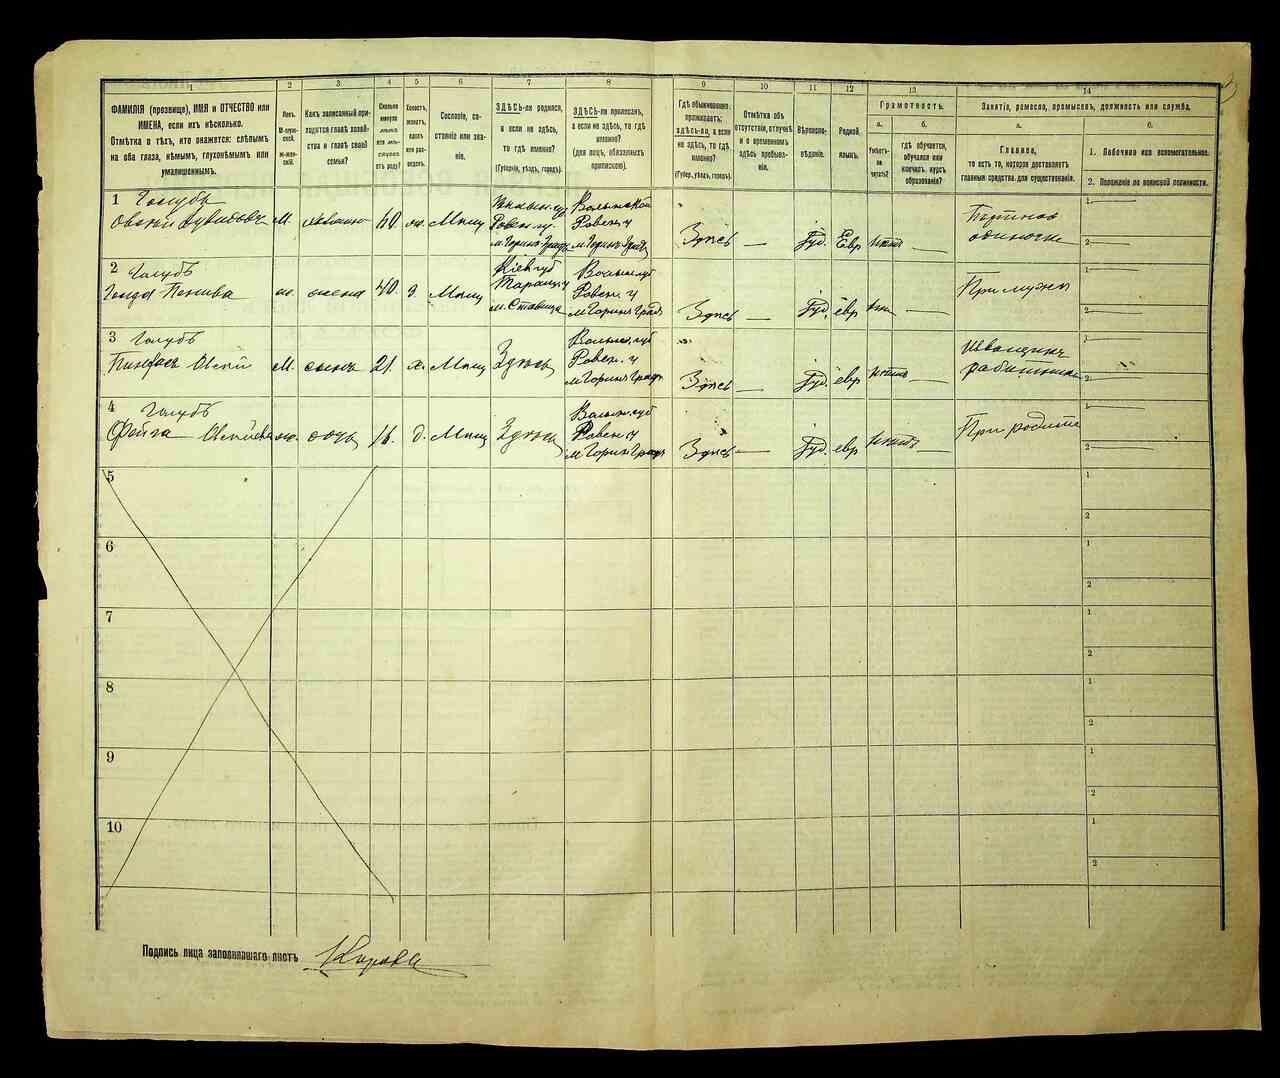 1
2
3
4
5
6
7
8
9
10
11
12
13
14
ФАМИЛІЯ (прозвище), ИМЯ и ОТЧЕСТВО или
ИМЕНА, если ихъ нѣсколько.
Отмѣтка о тѣхъ, кто окажется: слѣпымъ
на оба глаза, нѣмымъ, глухонѣмымъ или
умалишеннымъ.
Полъ.
М-муж-
ской.
Ж-жен-
скій.
Какъ записанный при-
ходится главѣ хозяй-
ства и главѣ своей
семьи?
Сколько
минуло
лѣтъ
или мѣ-
сяцевъ
отъ роду?
Холостъ,
женатъ,
вдовъ
или раз-
веденъ.
Сословіе, со-
стояніе или зва-
ніе.
ЗДѢСЬ-ли родился,
а если не здѣсь,
то гдѣ именно?
(Губернія, уѣздъ, городъ).
ЗДѢСЬ-ли приписанъ,
а если не здѣсь, то гдѣ
именно?
(для лицъ, обязанныхъ
припискою).
Гдѣ обыкновенно
проживаетъ:
здѣсь-ли, а если
не здѣсь, то гдѣ
именно?
(Губер., уѣздъ, городъ).
Отмѣтка объ
отсутствіи, отлучкѣ
и о временномъ
здѣсь пребыва-
ніи.
Вѣроиспо-
вѣданіе.
Родной
языкъ.
Грамотность.
а.
б.
Умѣетъ-
ли
читать?
гдѣ обучается,
обучался или
кончилъ курсъ
образованія?
Занятія, ремесло, промыселъ, должность или служба.
а.
б.
Главное,
то есть то, которое доставляетъ
главныя средства для существованія.
1. Побочное или вспомогательное.
2. Положеніе по воинской повинности.
1 Голубъ
М. хозяинъ 40 ж. Мѣщ
Ровен. у.
Волынской
Ровен. у
Здѣсь — Іуд. Евр нѣтъ —
1
2
2 Голубъ
ж. жена 40. з. Мѣщ
Кіев губ
Таращ. у
м. Ставище
Волын губ
Ровен. у
Здѣсь — Іуд. евр —
При мужѣ
1
2
3 Голубъ
М. сынъ 21. х. Мѣщ Здѣсь
Волын. губ
Ровен. у
Здѣсь — Іуд. евр нѣтъ —
1
2
4 Голубъ
Фейга
ж. дочь 16. д. Мѣщ Здѣсь
Волын. губ
Ровен. у
Здѣсь — Іуд. евр нѣтъ —
При родите
1
2
5
1
2
6
1
2
7
1
2
8
1
2
9
1
2
10
1
2
Подпись лица заполнявшаго листъ